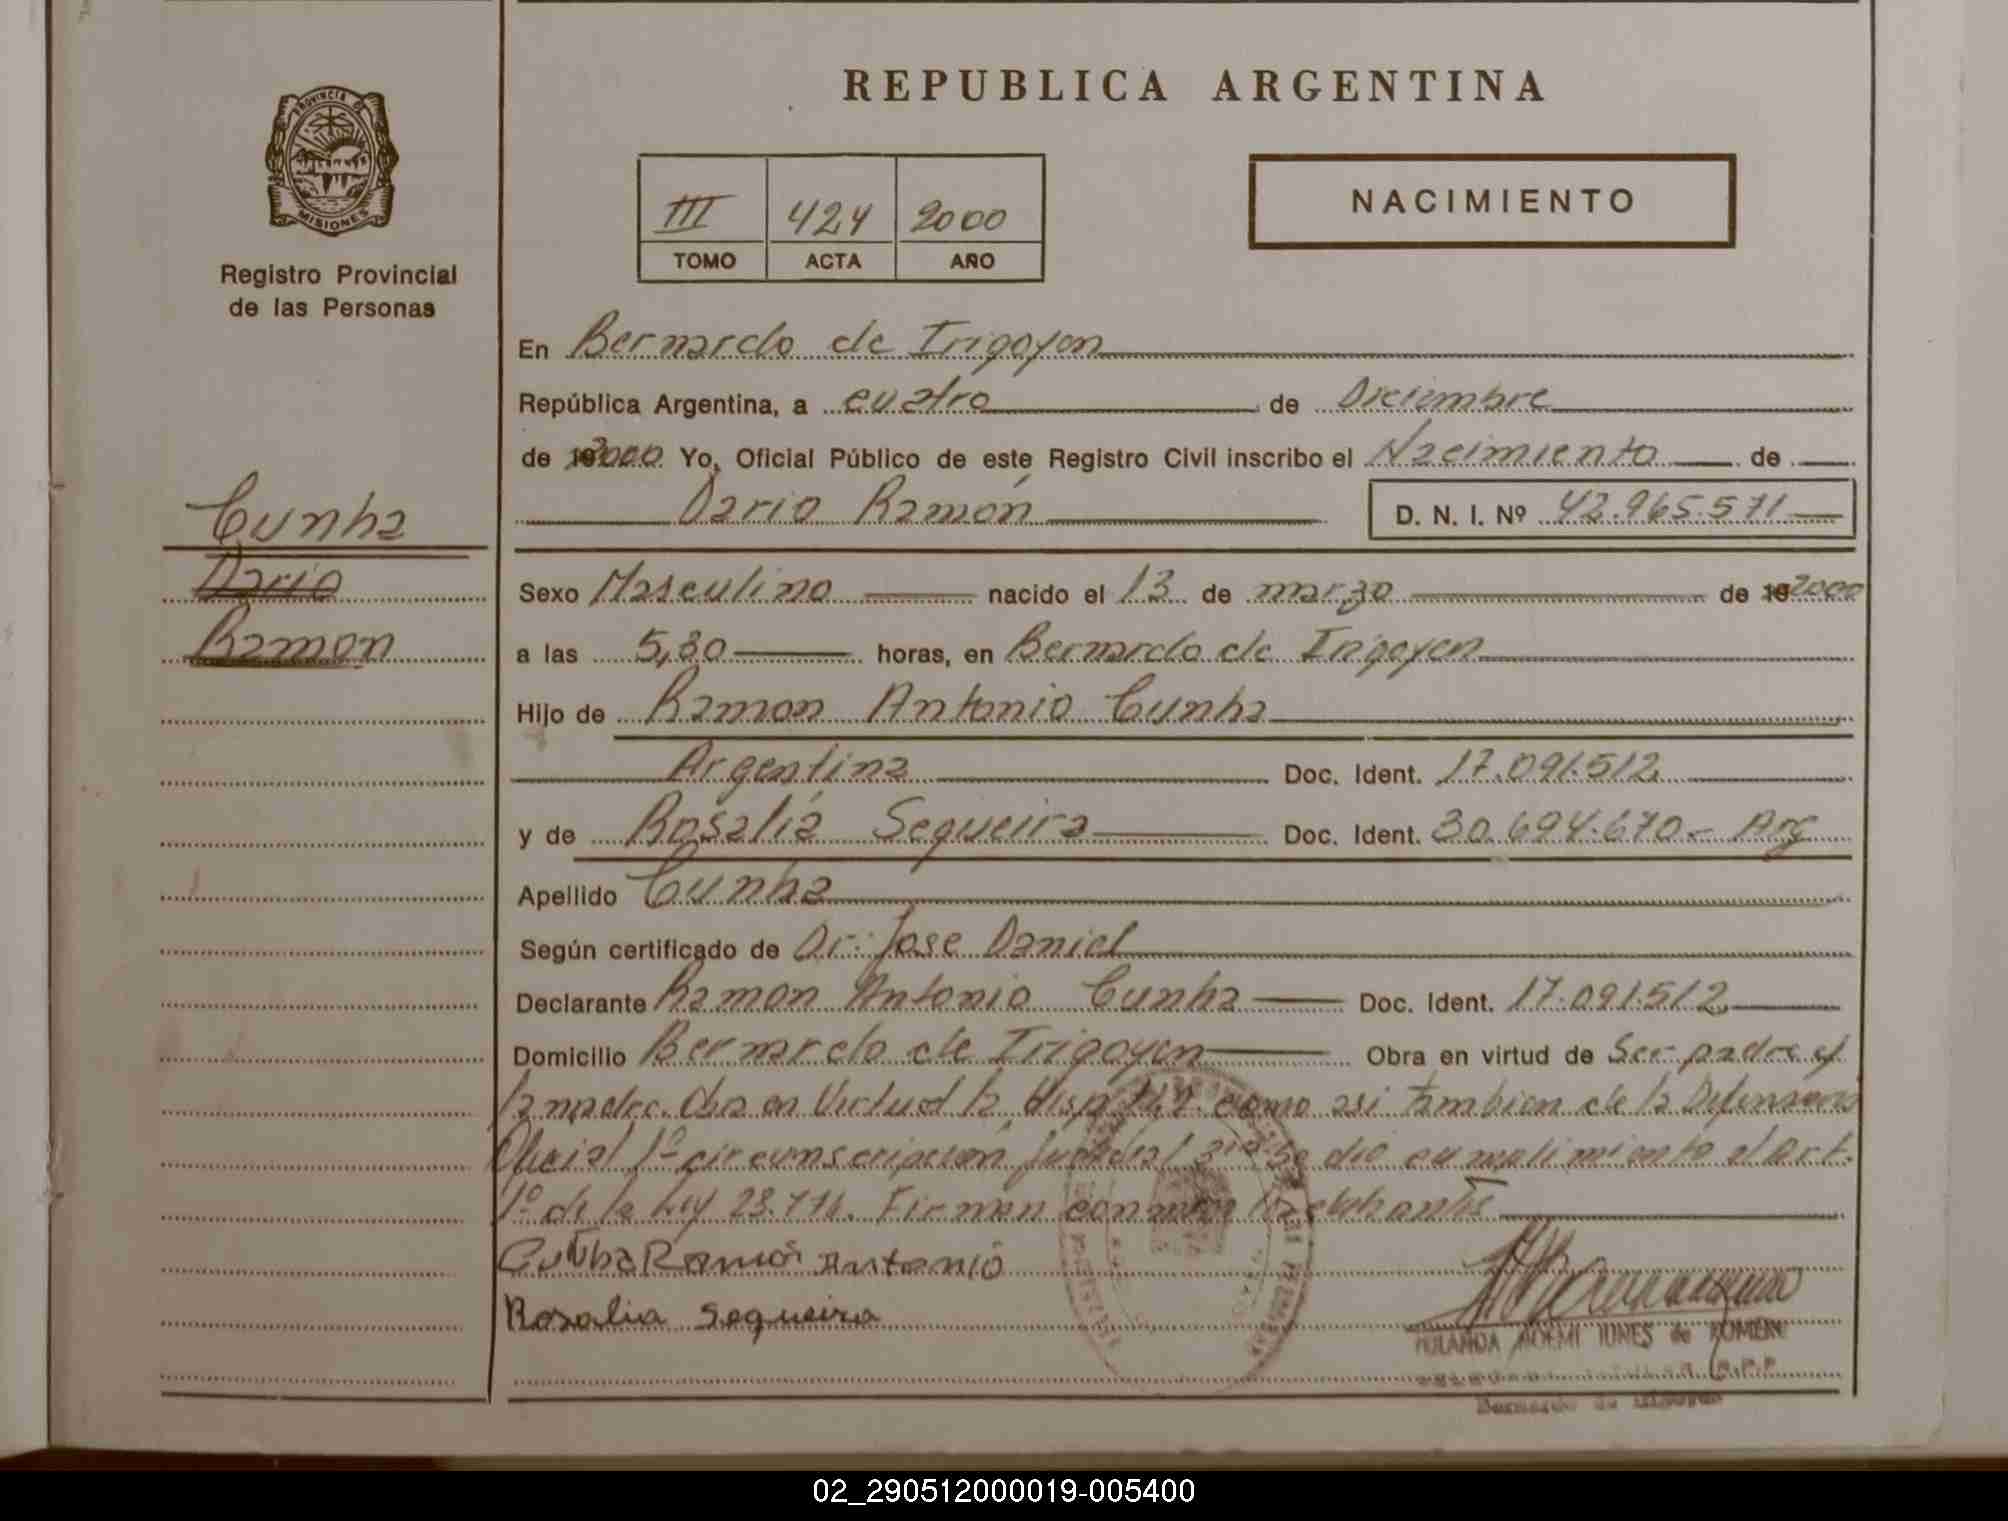 REPUBLICA ARGENTINA
PROVINCIA DE
MISIONES
Registro Provincial
de las Personas
III 424 2000
TOMO ACTA AÑO
NACIMIENTO
En Bernardo de Irigoyen
República Argentina, a cuatro de Diciembre
de 2000 Yo, Oficial Público de este Registro Civil inscribo el Nacimiento de
Cunha
Dario Ramón D. N. I. Nº 42.965.571
Dario
Sexo Masculino nacido el 13 de marzo de 2000
Ramon
a las 5,30 horas, en Bernardo de Irigoyen
Hijo de Ramon Antonio Cunha
Argentina Doc. Ident. 17.091.512
y de Rosalia Sequeira Doc. Ident. 30.694.670.- Arg
Apellido Cunha
Según certificado de Dr: Jose Daniel
Declarante Ramon Antonio Cunha Doc. Ident. 17.091.512
Domicilio Bernardo de Irigoyen Obra en virtud de Ser padre y
la madre. Obra en Virtud la como asi tambien de la
Oficial 1º circunscripcion Judicial se dio cumplimiento al art.
1º de la Ley Firman
Cunha Ramon Antonio
Rosalia Sequeira
YOLANDA NOEMI de
Bernardo de Irigoyen
02_290512000019-005400